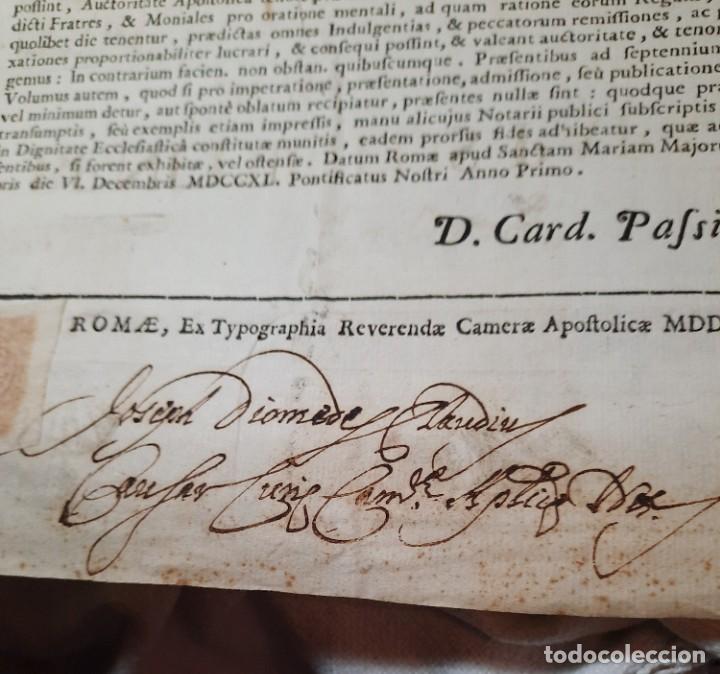 poſſint, Auctoritate Apoſtolica
dicti Fratres, & Moniales pro oratione mentali, ad quam ratione eorum
quolibet die tenentur, prædictas omnes Indulgentias, & peccatorum remiſſiones, ac
xationes proportionabiliter lucrari, & conſequi poſſint, & valeant auctoritate, & teno
gemus: In contrarium facien. non obſtan. quibuſcumque. Præſentibus ad ſeptennium
Volumus autem, quod ſi pro impetratione, præſentatione, admiſſione, ſeù publicatione
vel minimum detur, aut ſpontè oblatum recipiatur, præſentes nullæ ſint: quodque
tranſumptis, ſeù exemplis etiam impreſſis, manu alicujus Notarii publici ſubſcriptis
in Dignitate Eccleſiaſticâ conſtitutæ munitis, eadem prorſus fides adhibeatur, quæ
entibus, ſi forent exhibitæ, vel oſtenſæ. Datum Romæ apud Sanctam Mariam Major
bris die VI. Decembris MDCCXL. Pontificatus Noſtri Anno Primo.
D. Card. Paſſi
ROMÆ, Ex Typographia Reverendæ Cameræ Apoſtolicæ MDD
Joseph Diomedes Claudius
todocoleccion